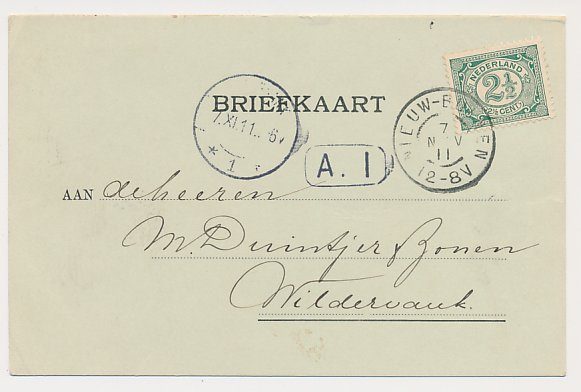 NEDERLAND
2½
2½ CENT
BRIEFKAART
7 XI.11. 6V
* 1 *
NIEUW-B EN
7
NOV
11
12-8V
A. 1
AAN de heeren
M. Duintjer & Zonen
Wildervank.